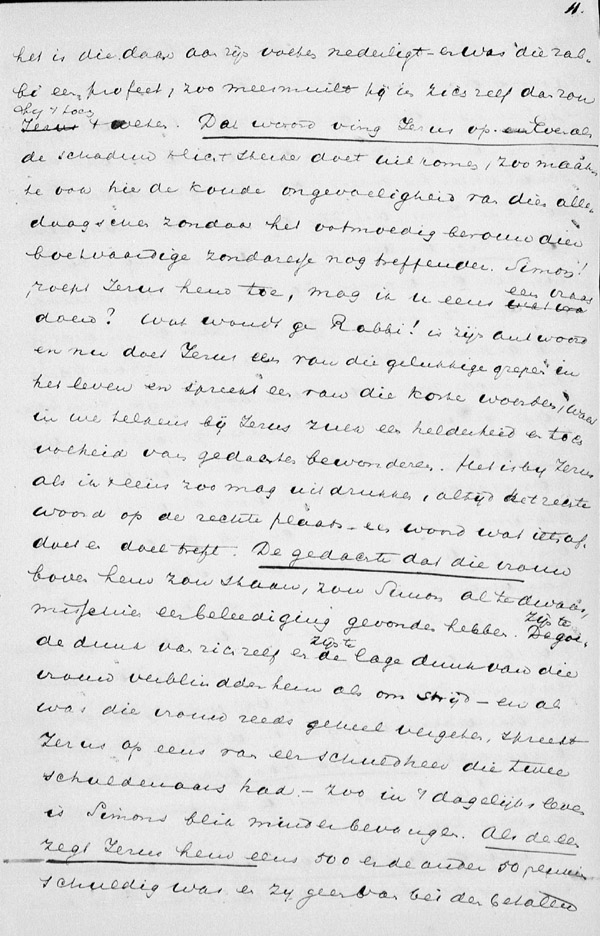 4.
het is die daar aan zijn voeten nederligt – er was die rab-
bi een profeet, zoo meesmuilt hij in zich zelf dan zou
hij 't toch
Jezus 't weten. Dat woord ving Jezus op. en Evenals
de schaduw 't licht sterker doet uitkomen, zoo maak-
te ook hier de koude ongevoeligheid van dien alle-
daagschen zondaar het ootmoedig berouw dier
boetvaardige zondaresse nog treffender. Simon!
roept Jezus hem toe, mag ik u eens een vraag
doen? Wat woudt ge Rabbi! is zijn antwoord
en nu doet Jezus een van die gelukkige grepen in
het leven en spreekt een van die korte woorden, waar
in we telkens bij Jezus zulk een helderheid en toch
volheid van gedachten bewonderen. Het is bij Jezus
als ik 't eens zoo mag uitdrukken, altijd het rechte
woord op de rechte plaats – een woord wat
doet en doel treft. De gedachte dat die vrouw
boven hem zou staan, zou Simon al te dwaas,
misschien een beleediging gevonden hebben. zijn te
de dunk van zich zelf en zijn te de lage dunk van die
vrouw verblindden hem als om strijd – en als
was die vrouw reeds geheel vergeten, spreekt
Jezus op eens van een schuldheer die twee
schuldenaars had – zoo in 't dagelijks leven
is Simons blik minder bevangen. Als de een
zegt Jezus hem eens 500 en de ander 50 penningen
schuldig was en zij geen van beiden betalen